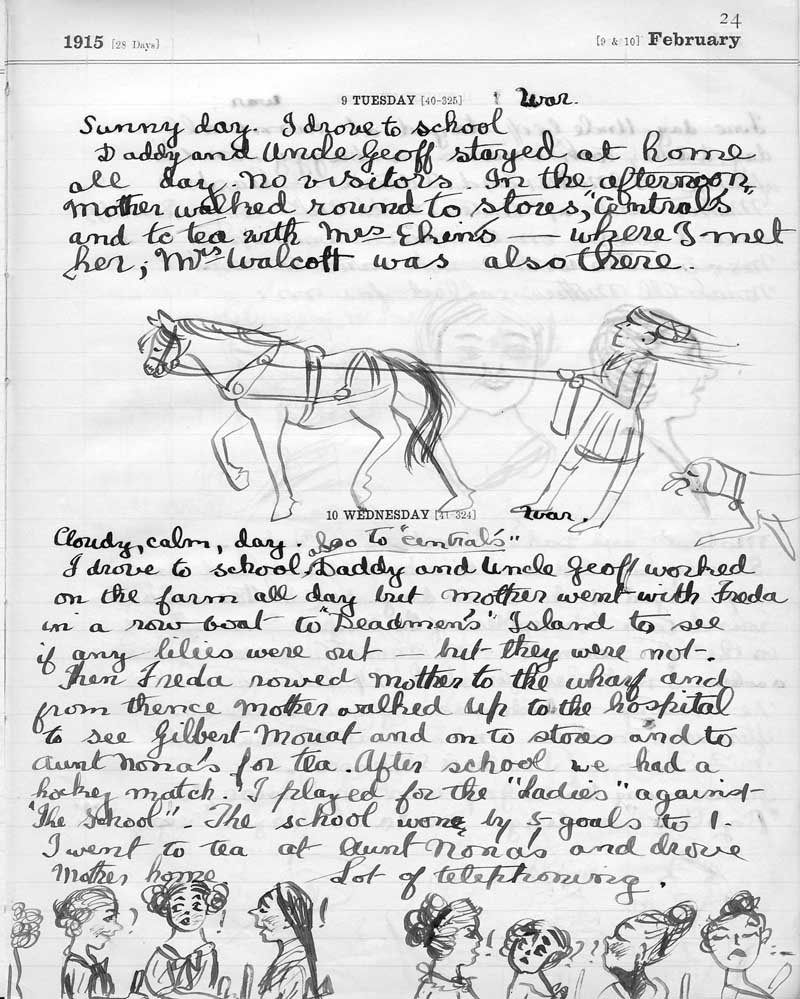 24
1915 [28 Days] [9 & 10] February
9 TUESDAY [40-325] War.
Sunny day. I drove to school
Daddy and Uncle Geoff stayed at home
all day. No visitors. In the afternoon,
Mother walked round to stores, "Central's"
and to tea with Mrs Ekins — where I met
her; Mrs Walcott was also there.
10 WEDNESDAY [41-324] War.
Cloudy, calm, day. to "Central's"
I drove to school, Daddy and Uncle Geoff worked
on the farm all day but Mother went with Freda
in a row boat to "Deadmen's" Island to see
if any lilies were out — but they were not-.
Then Freda rowed Mother to the wharf and
from thence Mother walked up to the hospital
to see Gilbert Mouat and on to stores and to
Aunt Nona's for tea. After school we had a
hockey match. I played for the "Ladies" against
"The School". The school wone by 5 goals to 1.
I went to tea at Aunt Nona's and drove
Mother home Lot of telephoning.
? ! ! ! ??